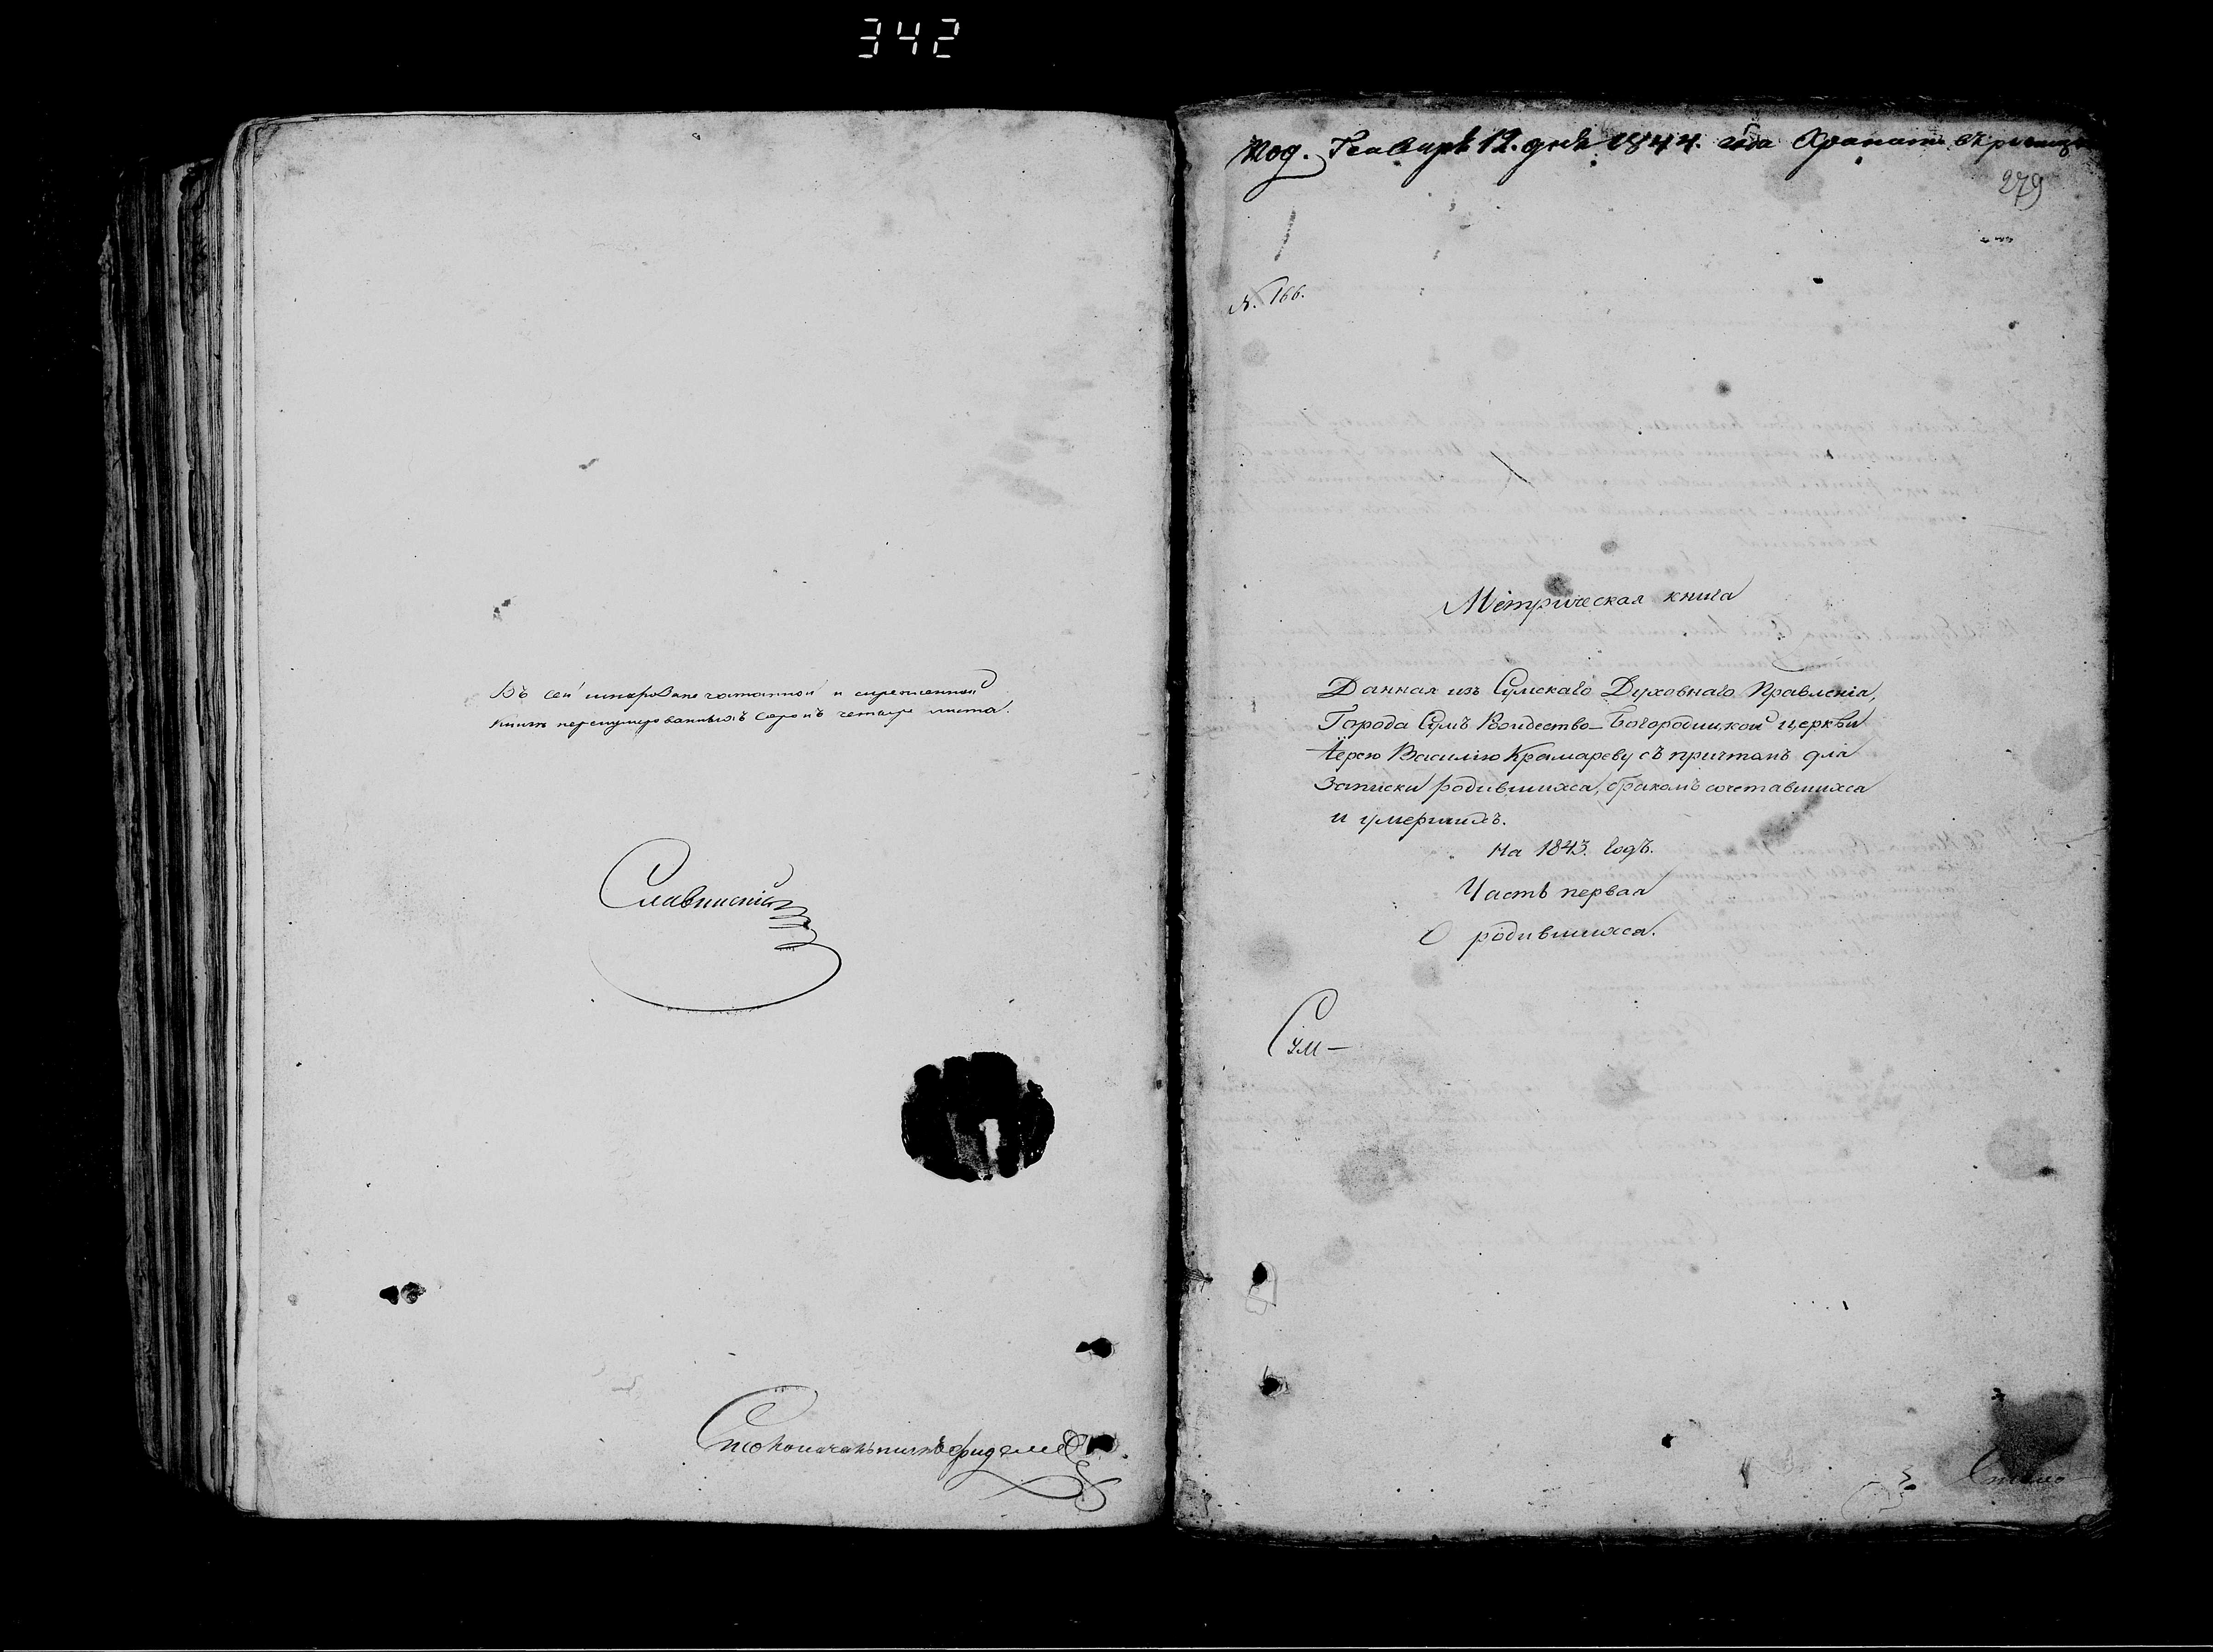 342
Въ сей шнурозапечатанной и скрепленной
книгѣ перенумерованныхъ сорокъ четыре листа.
Славинскій
Столоначальникъ
Под. Генваря 12. дня 1844. года Хранить въ ризницѣ
279
N. 166.
Метрическая книга
Данная изъ Сумскаго Духовнаго Правленія,
Города Сумъ Рождество-Богородицкой церкви
Іерею Василію Крамареву съ причтомъ для
записки родившихся, бракомъ сочетавшихся
и умершихъ.
На 1843. годъ.
Часть первая
О родившихся.
Сум-
Столо-